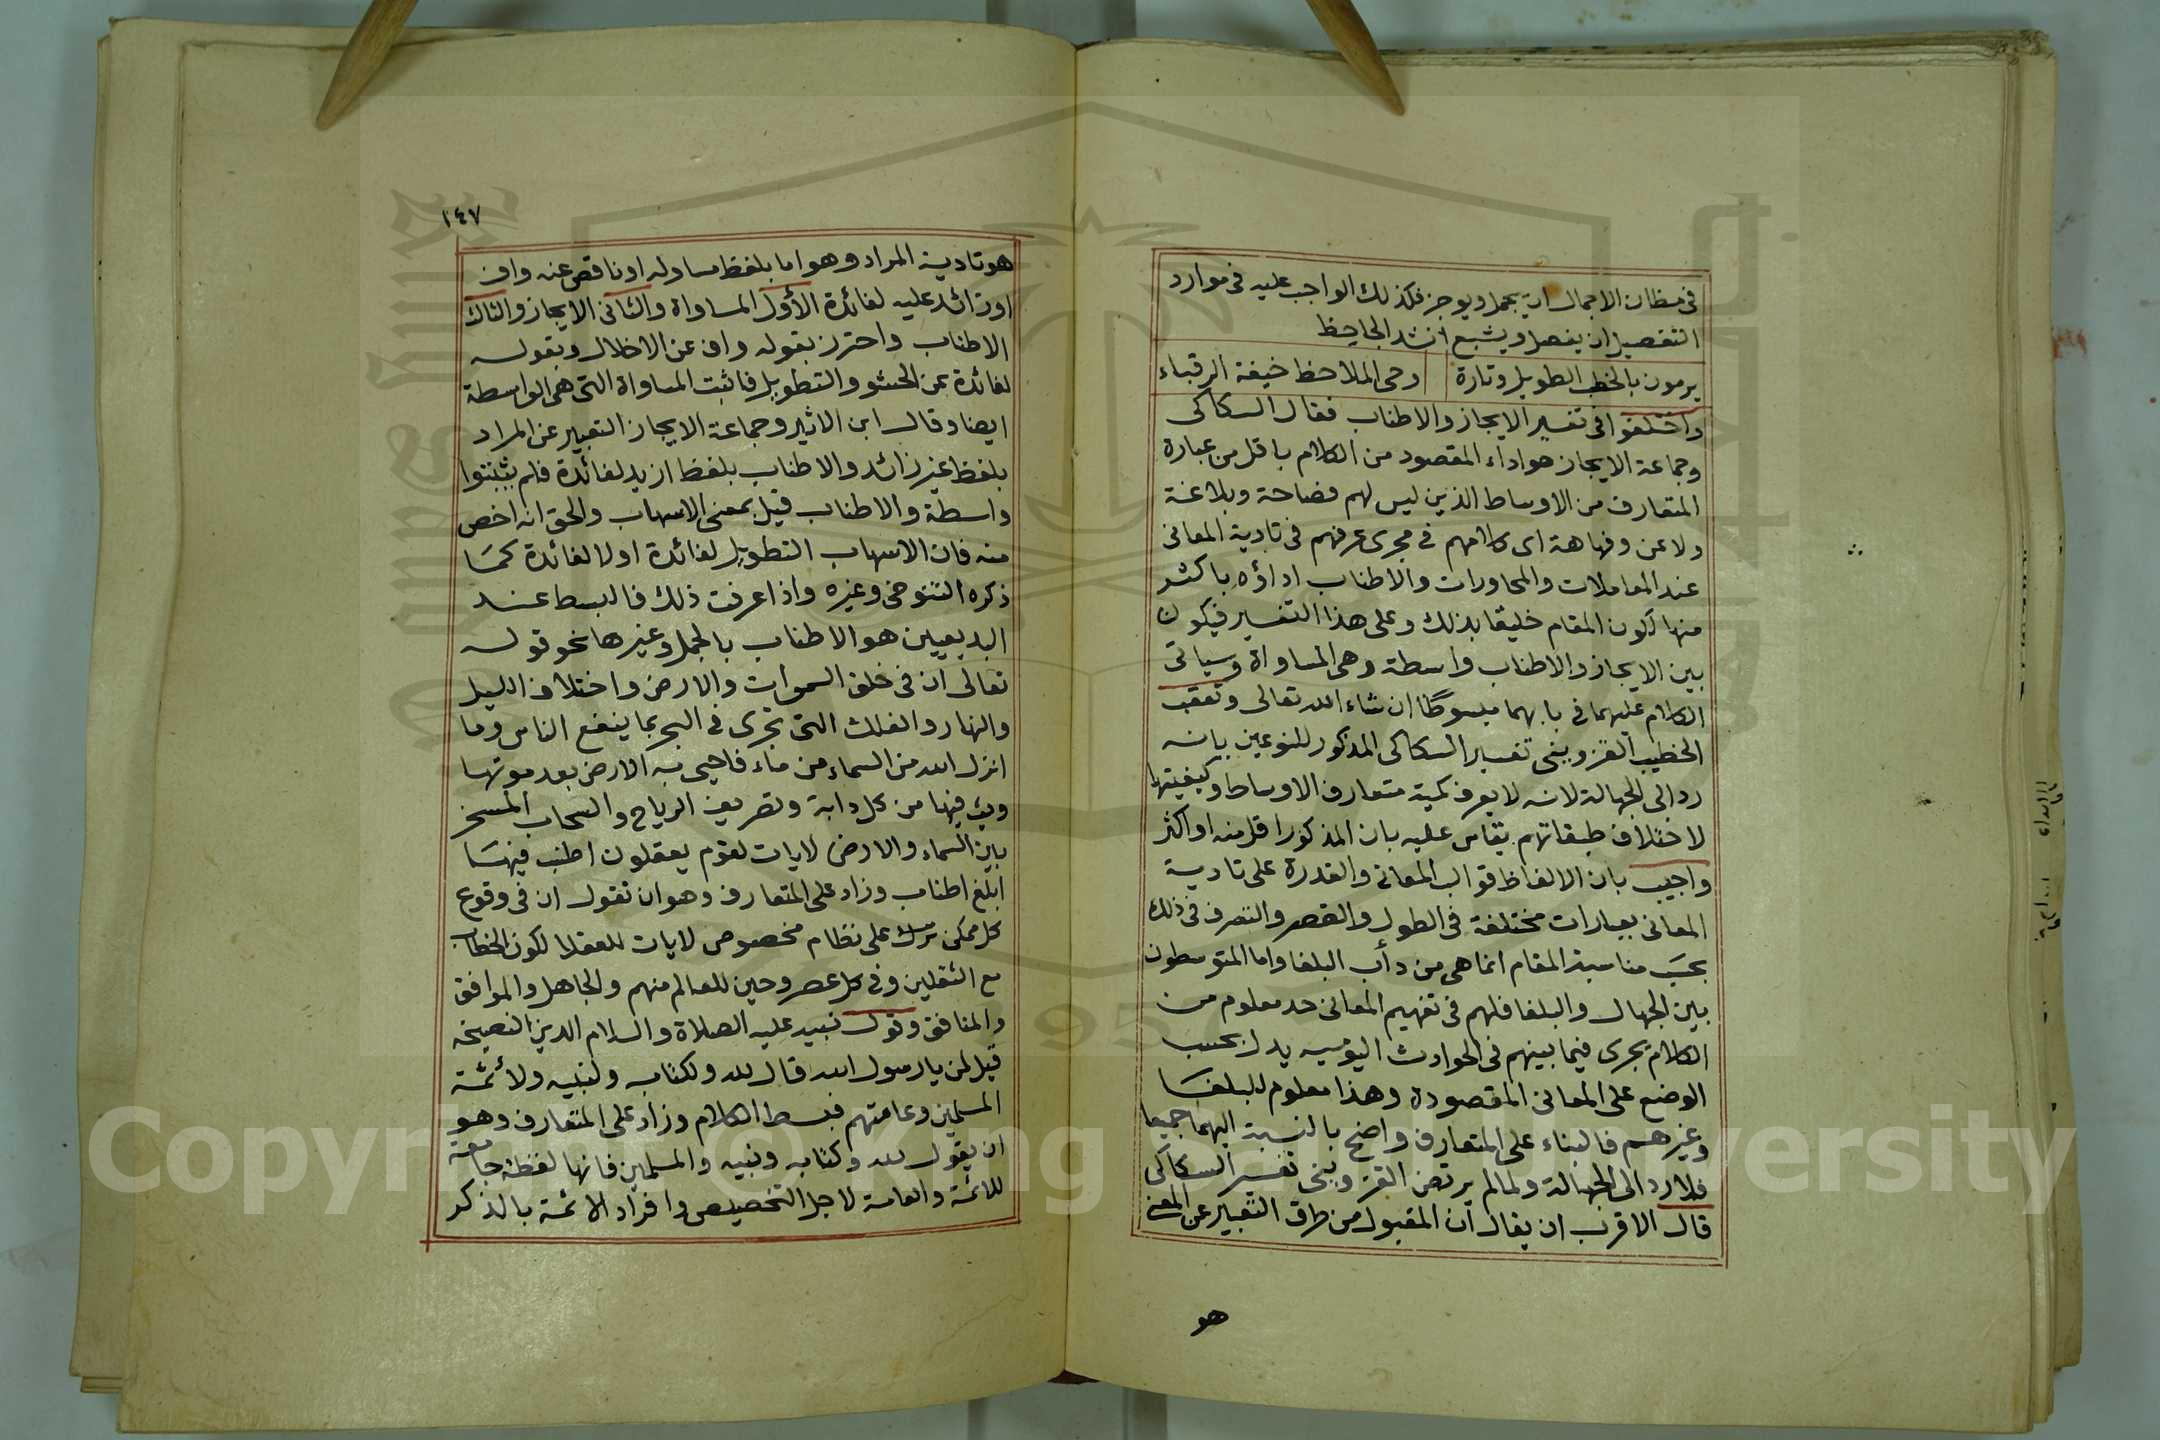 في مظان الاجمال ان يجمل ويوجز فكذلك الواجب عليه في موارد
التفصيل ان يفصل ويشبع انشد الجاحظ
يرمون بالخطب الطويل وتارة وحى الملاحظ خيفة الرقباء
واختلفوا في تفسير الايجاز والاطناب فقال السكاكى
وجماعة الايجاز هو اداء المقصود من الكلام باقل من عبارة
المتعارف من الاوساط الذين ليس لهم فصاحة وبلاغة
ولا عن وفهاهة اى كلامهم في مجرى عرفهم في تادية المعانى
عند المعاملات والمحاورات والاطناب اداؤه باكثر
منها لكون المقام خليقا بذلك وعلى هذا التفسير فيكون
بين الايجاز والاطناب واسطة وهى المساواة وسياتى
الكلام عليهما في بابهما مبسوطا ان شاء الله تعالى وتعقب
الخطيب القزوينى تفسير السكاكى المذكور للنوعين بانه
رد الى الجهالة لانه لا يعرف كمية متعارف الاوساط وكيفيتها
لاختلاف طبقاتهم يقاس عليه بان المذكور اقل منه او اكثر
واجيب بان الالفاظ قوالب المعانى والقدرة على تادية
المعانى بعبارات مختلفة في الطول والقصر والتصرف في ذلك
بحسب مناسبة المقام انما هى من دأب البلغا واما المتوسطون
بين الجهال والبلغا فلهم في تفهيم المعانى حد معلوم من
الكلام يجرى فيما بينهم في الحوادث اليوميه يدل بحسب
الوضع على المعانى المقصودة وهذا معلوم للبلغا
وغيرهم فالبناء على المتعارف واضح بالنسبة اليهما جميعا
فلا رد الى الجهالة ولما لم يرتض القزوينى تفسير السكاكى
قال الاقرب ان يقال ان المقبول من طرق التعبير عن المعنى
هو
١٤٧
هو تادية المراد وهو اما بلفظ مساو له او ناقص عنه واف
او زائد عليه لفائدة الأول المساواة والثانى الايجاز والثالث
الاطناب واحترز بقوله واف عن الاخلال وبقوله
لفائدة عن الحشو والتطويل فاثبت المساواة التى هى الواسطة
ايضا وقال ابن الاثير وجماعة الايجاز التعبير عن المراد
بلفظ غير زائد والاطناب بلفظ ازيد لفائدة فلم يثبتوا
واسطة والاطناب قيل بمعنى الاسهاب والحق انه اخص
منه فان الاسهاب التطويل لفائدة او لا لفائدة كما
ذكره التنوخى وغيره واذا عرفت ذلك فالبسط عند
البديعيين هو الاطناب بالجمل وغيرها نحو قوله
تعالى ان في خلق السموات والارض واختلاف الليل
والنهار والفلك التى تجرى في البحر بما ينفع الناس وما
انزل الله من السماء من ماء فاحيى به الارض بعد موتها
وبث فيها من كل دابة وتصريف الرياح والسحاب المسخر
بين السماء والارض لايات لقوم يعقلون اطنب فيها
ابلغ اطناب وزاد على المتعارف وهو ان تقول ان في وقوع
كل ممكن ترك على نظام مخصوص لايات للعقلا لكون الخطاب
مع الثقلين وفي كل عصر وحين للعالم منهم والجاهل والموافق
والمنافق وقول نبيه عليه الصلاة والسلام الدين النصيحه
قيل لمن يا رسول الله قال لله ولكتابه ولنبيه ولأئمة
المسلمين وعامتهم فبسط الكلام وزاد على المتعارف وهو
ان يقول لله وكتابه ونبيه والمسلمين فانها لفظة جامعة
للائمة والعامة لاجل التخصيص وافراد الائمة بالذكر
Copyright © King Saud University